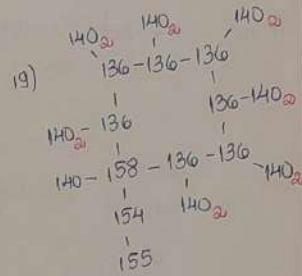 140₂ 140₂ 140₂
136-136-136
19)
136-140₂
140₂-136
140-158-136-136
-140₂
154 140₂
155